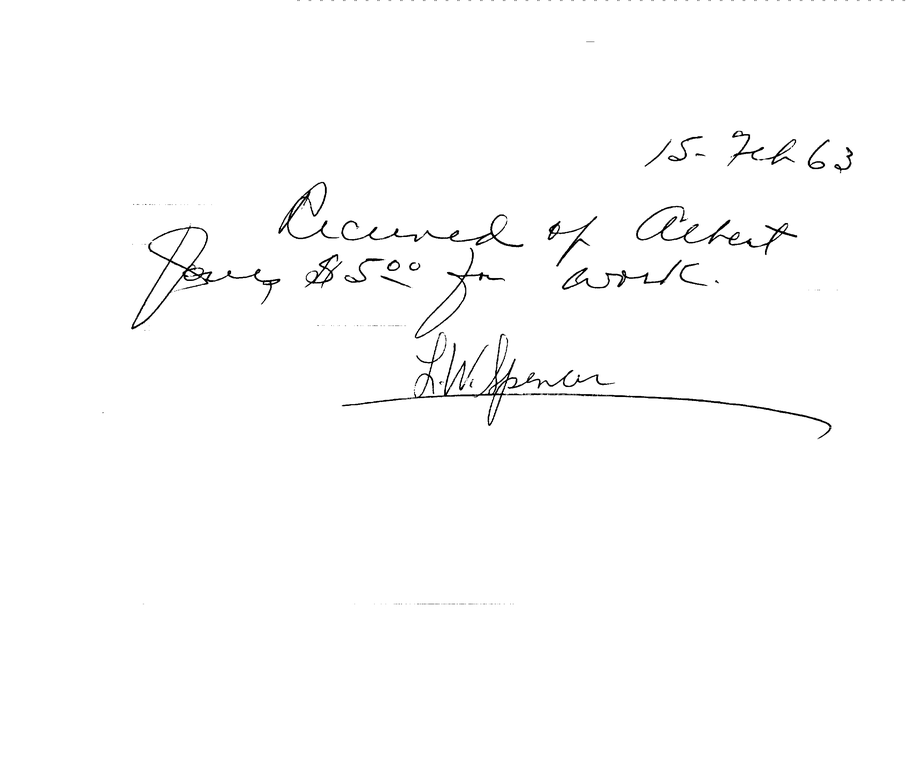 15- Feb 63
Received of Albert
Jones, $5.00 for work.
L.W. Spencer